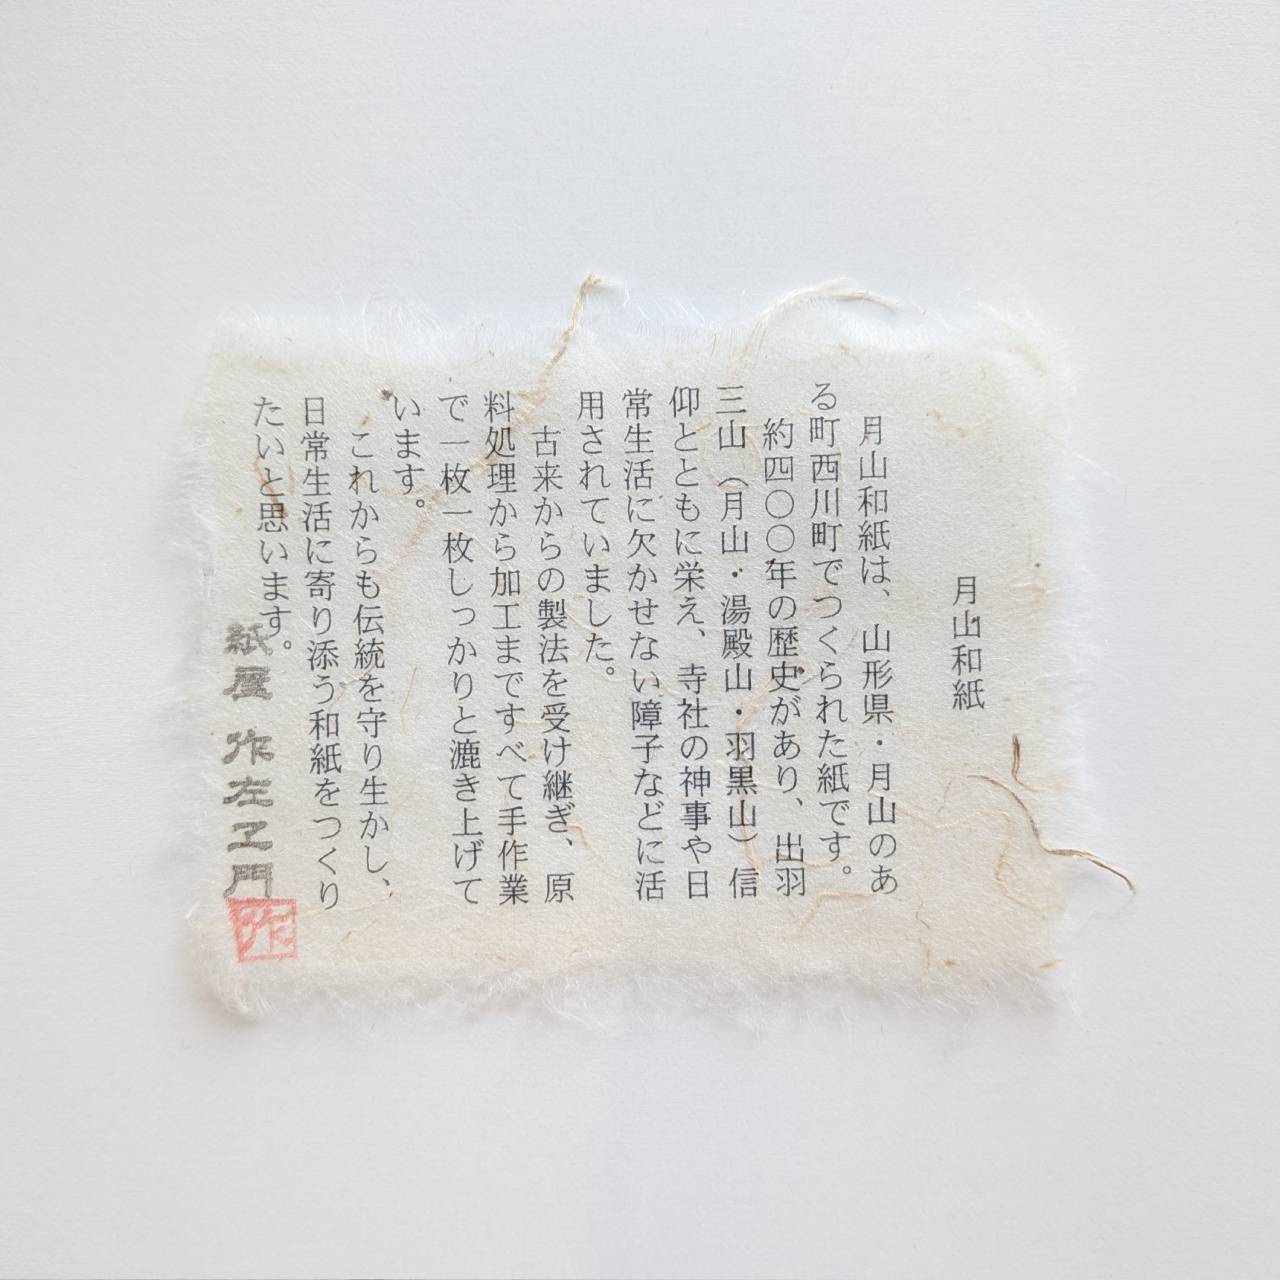 月山和紙
月山和紙は、山形県・月山のあ
る町西川町でつくられた紙です。
約四〇〇年の歴史があり、出羽
三山（月山・湯殿山・羽黒山）信
仰とともに栄え、寺社の神事や日
常生活に欠かせない障子などに活
用されていました。
古来からの製法を受け継ぎ、原
料処理から加工まですべて手作業
で一枚一枚しっかりと漉き上げて
います。
これからも伝統を守り生かし、
日常生活に寄り添う和紙をつくり
たいと思います。
紙屋 作左ヱ門
作